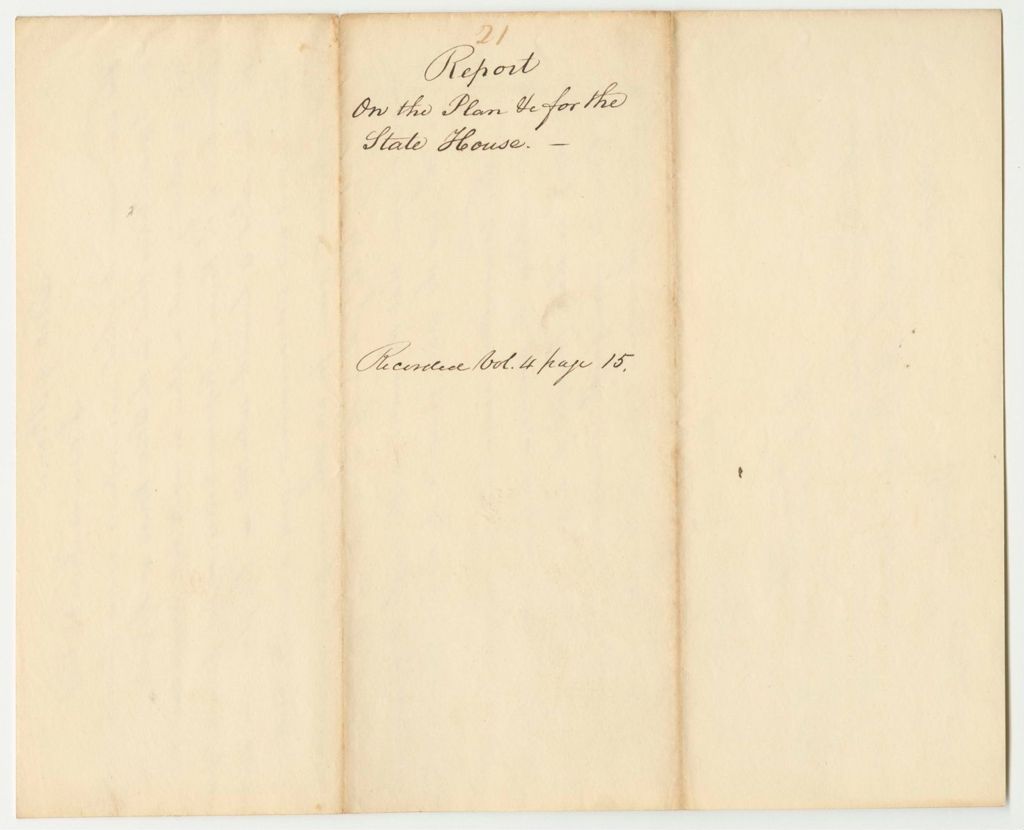 21
Report
On the Plan &c for the
State House. —
Recorded Vol. 4 page 15.